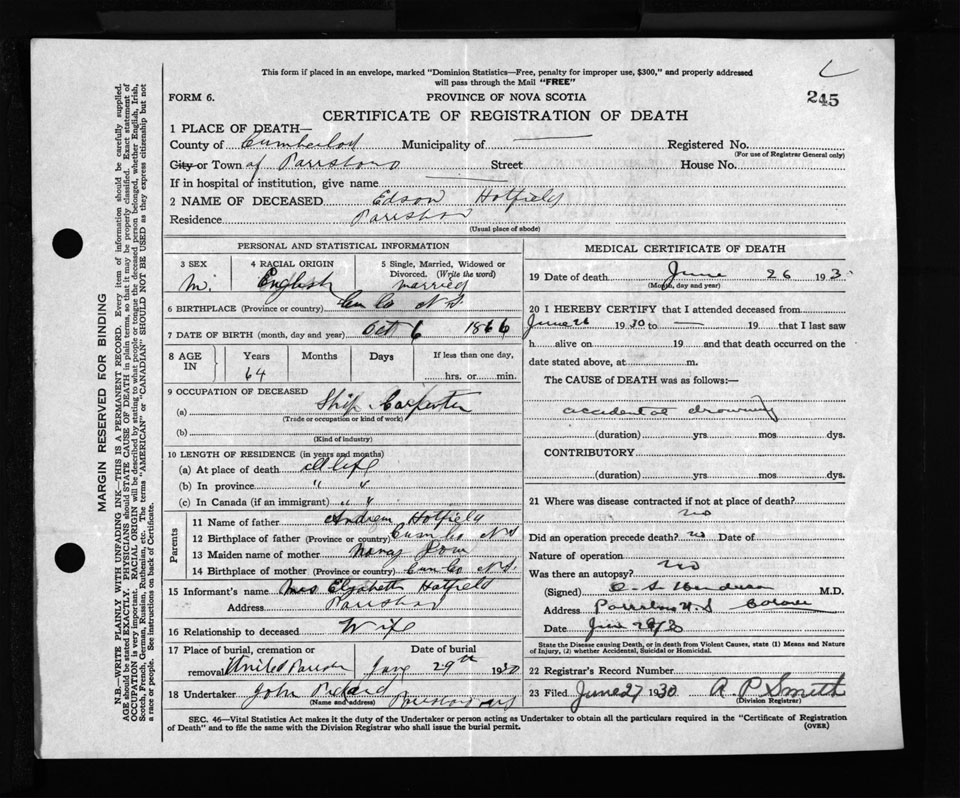 This form if placed in an envelope, marked "Dominion Statistics—Free, penalty for improper use, $300," and properly addressed
will pass through the Mail "FREE"
245
FORM 6.
PROVINCE OF NOVA SCOTIA
CERTIFICATE OF REGISTRATION OF DEATH
1 PLACE OF DEATH—
County of Municipality of — Registered No.
(For use of Registrar General only)
City or Town of Street House No.
If in hospital or institution, give name —
2 NAME OF DECEASED Edson Hatfield
Residence
(Usual place of abode)
PERSONAL AND STATISTICAL INFORMATION
3 SEX 4 RACIAL ORIGIN 5 Single, Married, Widowed or
Divorced. (Write the word)
M. English married
6 BIRTHPLACE (Province or country) Cum Co N S
7 DATE OF BIRTH (month, day and year) Oct 6 1866
8 AGE IN Years Months Days If less than one day,
64 hrs. or min.
9 OCCUPATION OF DECEASED
(a) Ship Carpenter
(Trade or occupation or kind of work)
(b)
(Kind of industry)
10 LENGTH OF RESIDENCE (in years and months)
(a) At place of death all life
(b) In province " "
(c) In Canada (if an immigrant) " "
Parents
11 Name of father Andrew Hatfield
12 Birthplace of father (Province or country) Cum Co N S
13 Maiden name of mother Nancy
14 Birthplace of mother (Province or country) Cum Co N S.
15 Informant's name Mrs Elizabeth Hatfield
Address
16 Relationship to deceased Wife
17 Place of burial, cremation or Date of burial
removal 29th 1930
18 Undertaker John Pickard
(Name and address)
MEDICAL CERTIFICATE OF DEATH
19 Date of death June 26 193
(Month, day and year)
20 I HEREBY CERTIFY that I attended deceased from
June 26 1930 to — 19 that I last saw
h alive on 19 and that death occurred on the
date stated above, at m.
The CAUSE of DEATH was as follows:—
accidental drowning
(duration) yrs mos dys.
CONTRIBUTORY
(duration) yrs mos dys.
21 Where was disease contracted if not at place of death?
no
Did an operation precede death? no Date of
Nature of operation
Was there an autopsy? no
(Signed) M.D.
Address
Date
State the Disease causing Death, or in death from Violent Causes, state (1) Means and Nature
of Injury, (2) whether Accidental, Suicidal or Homicidal.
22 Registrar's Record Number
23 Filed June 27 1930 A P Smith
(Division Registrar)
SEC. 46—Vital Statistics Act makes it the duty of the Undertaker or person acting as Undertaker to obtain all the particulars required in the "Certificate of Registration
of Death" and to file the same with the Division Registrar who shall issue the burial permit. (OVER)
MARGIN RESERVED FOR BINDING
N.B.—WRITE PLAINLY WITH UNFADING INK—THIS IS A PERMANENT RECORD. Every item of information should be carefully supplied.
AGE should be stated EXACTLY. PHYSICIANS should STATE CAUSE OF DEATH in plain terms, so that it may be properly classified. Exact statement of
OCCUPATION is very important. RACIAL ORIGIN will be described by stating to what people or tongue the deceased person belonged, whether English, Irish,
Scotch, French, German, Russian, Ruthenian, etc. The terms "AMERICAN" or "CANADIAN" SHOULD NOT BE USED as they express citizenship but not
a race or people. See instructions on back of Certificate.